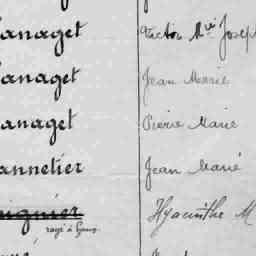 anaget Victor Mie Joseph
anaget Jean Marie
anaget Pierre Marie
annetier Jean Marie
aignier Hyacinthe M
rayé à